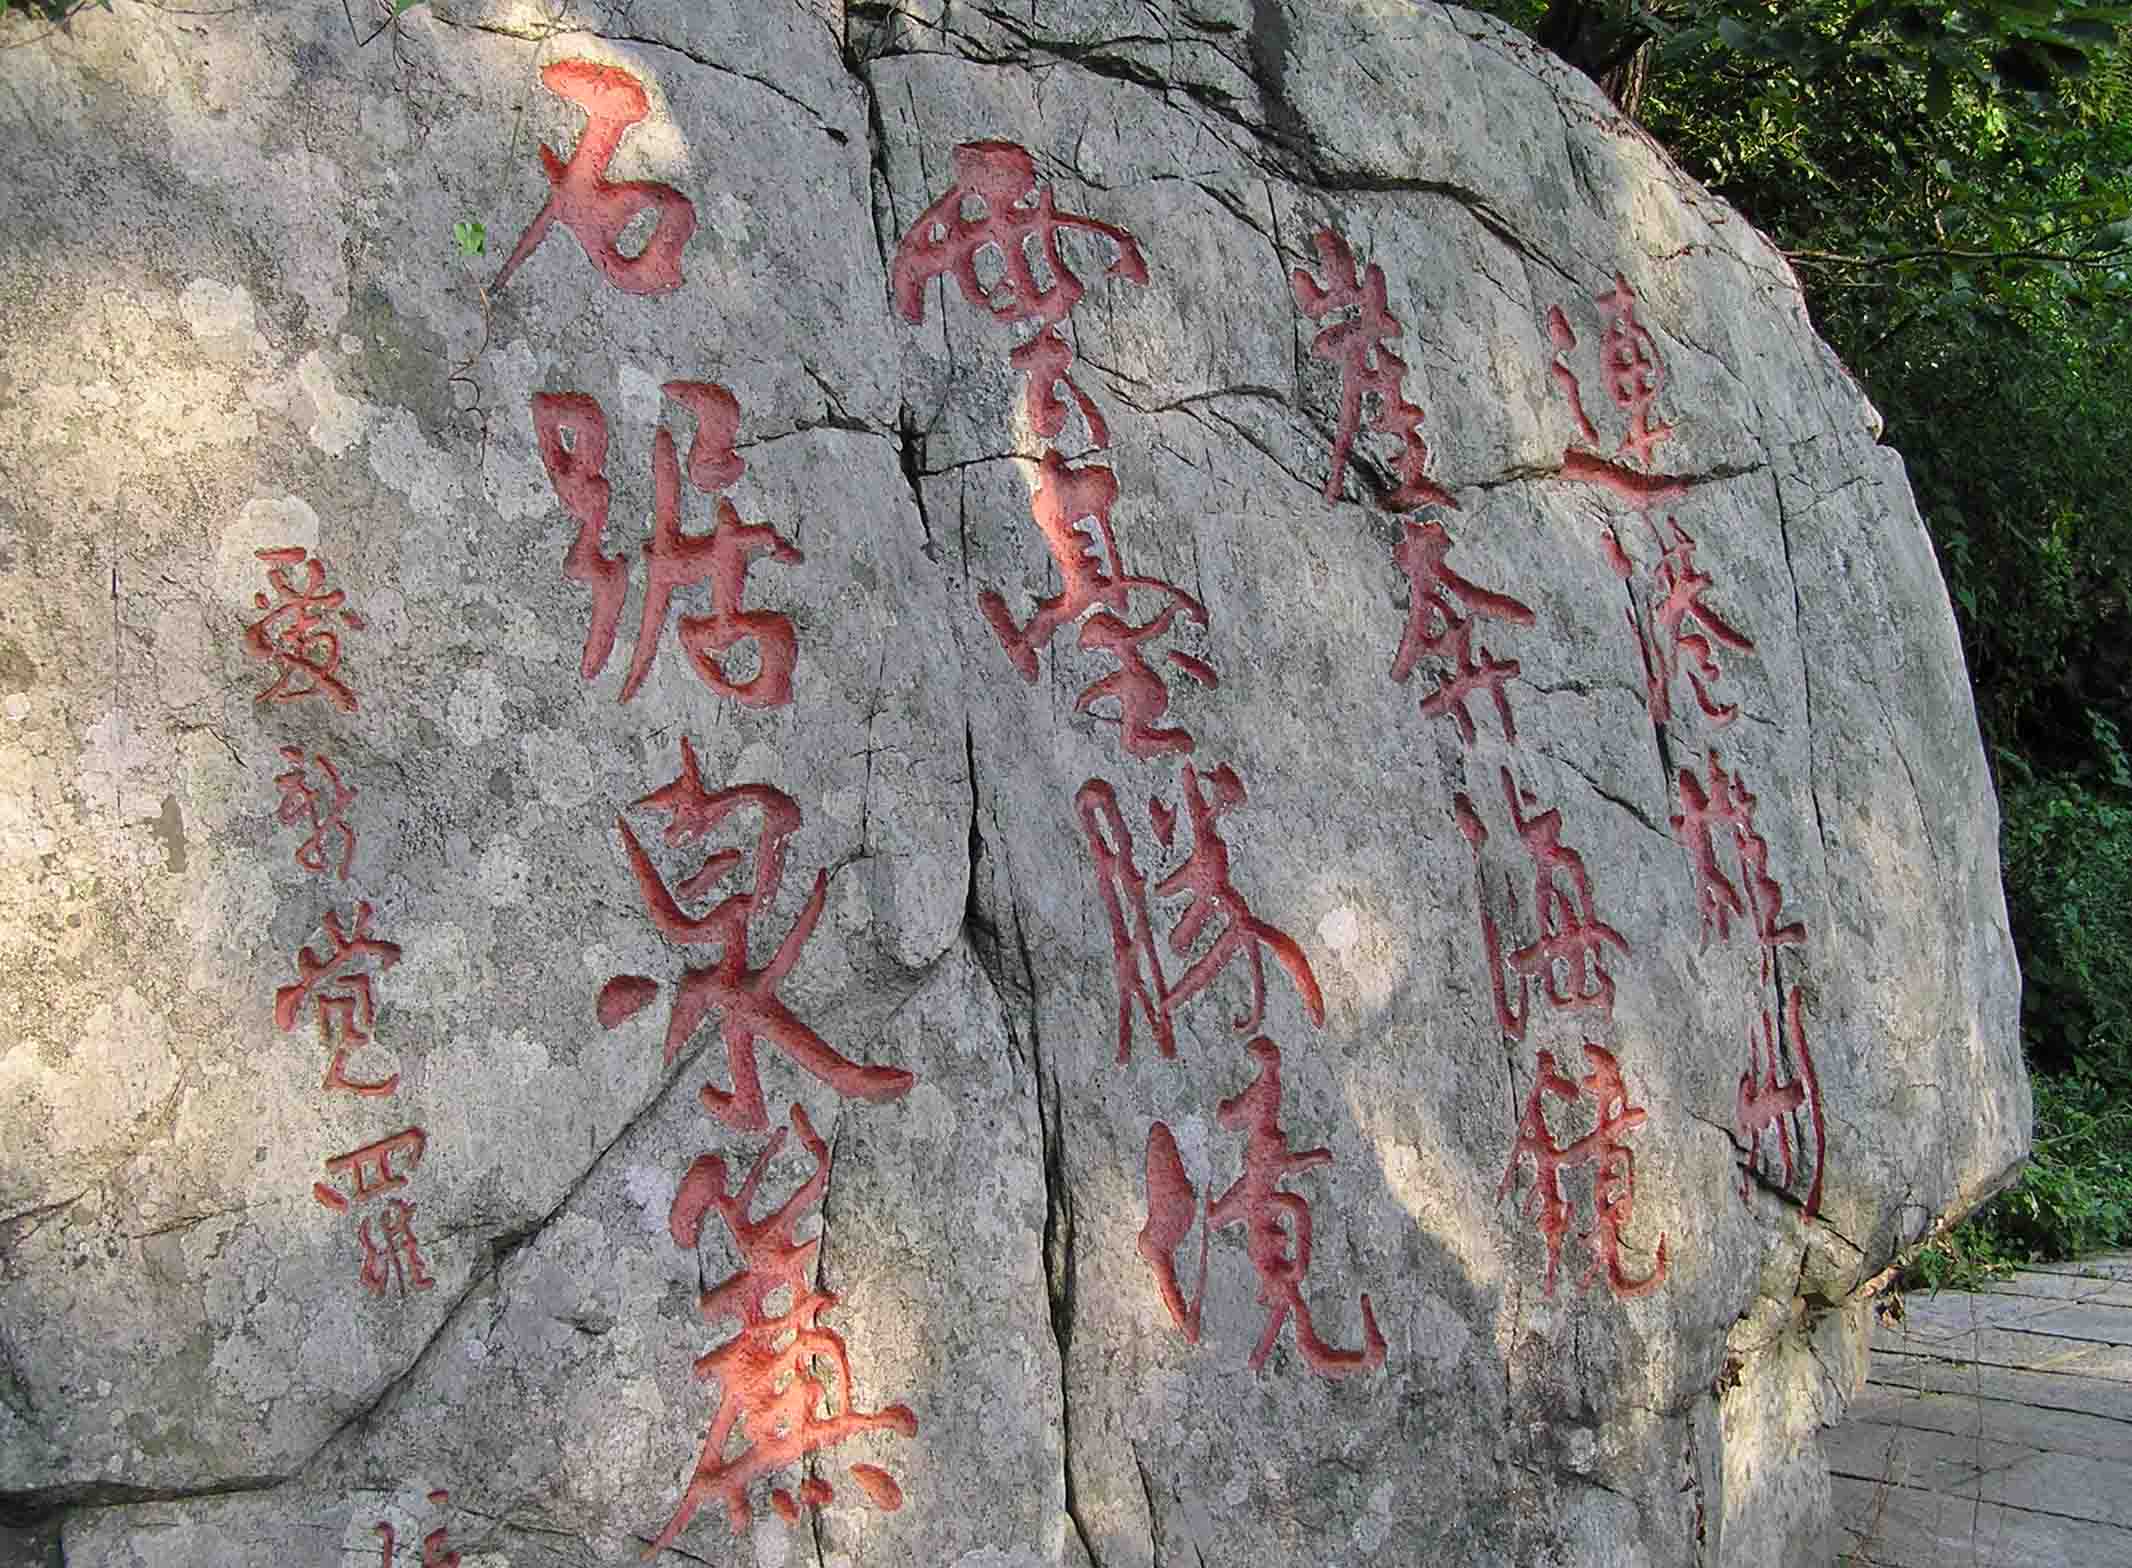 連港雄州
崖奔海鏡
雲臺勝境
石踞泉簾
愛新覺羅